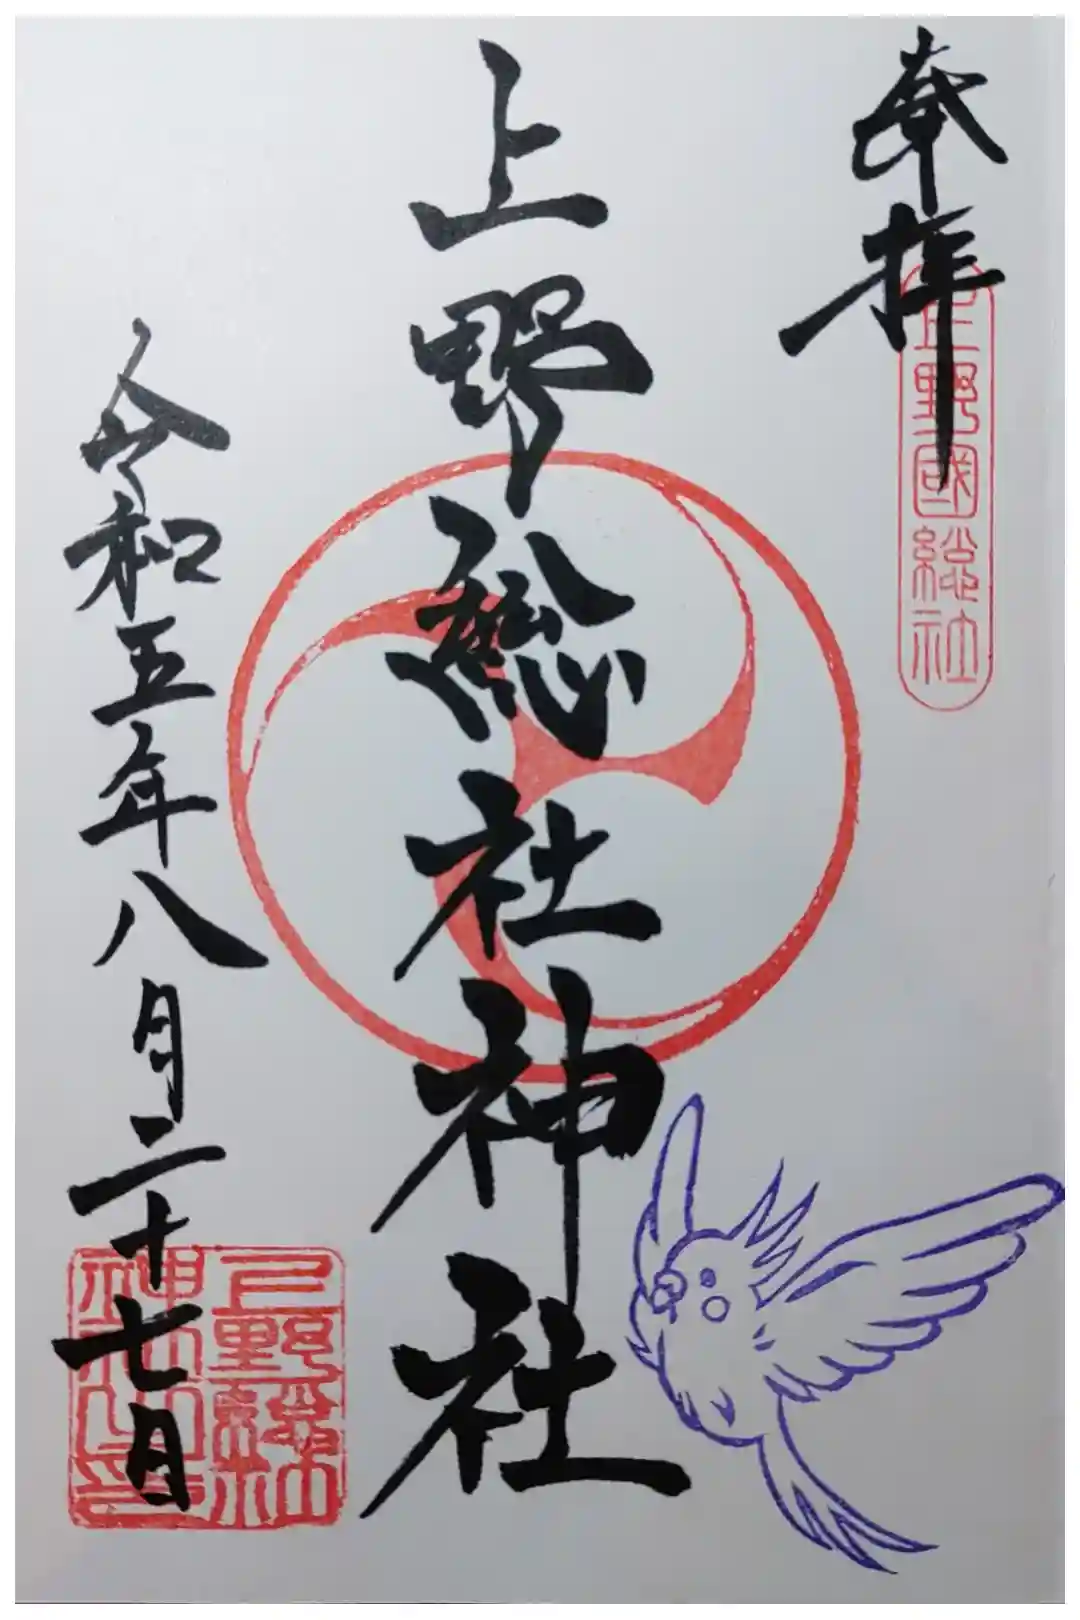 奉拝
上野國総社
上野総社神社
令和五年八月二十七日
上野総社
神社之印